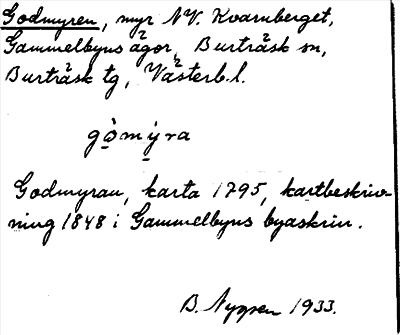 Godmyren, myr NV. Kvarnberget,
Gammelbyns ägor, Burträsk sn,
Burträsk tg, Västerb. l.
gòmýra
Godmyran, karta 1795, kartbeskriv-
ning 1848 i Gammelbyns byaskrin.
B. Nygren 1933.